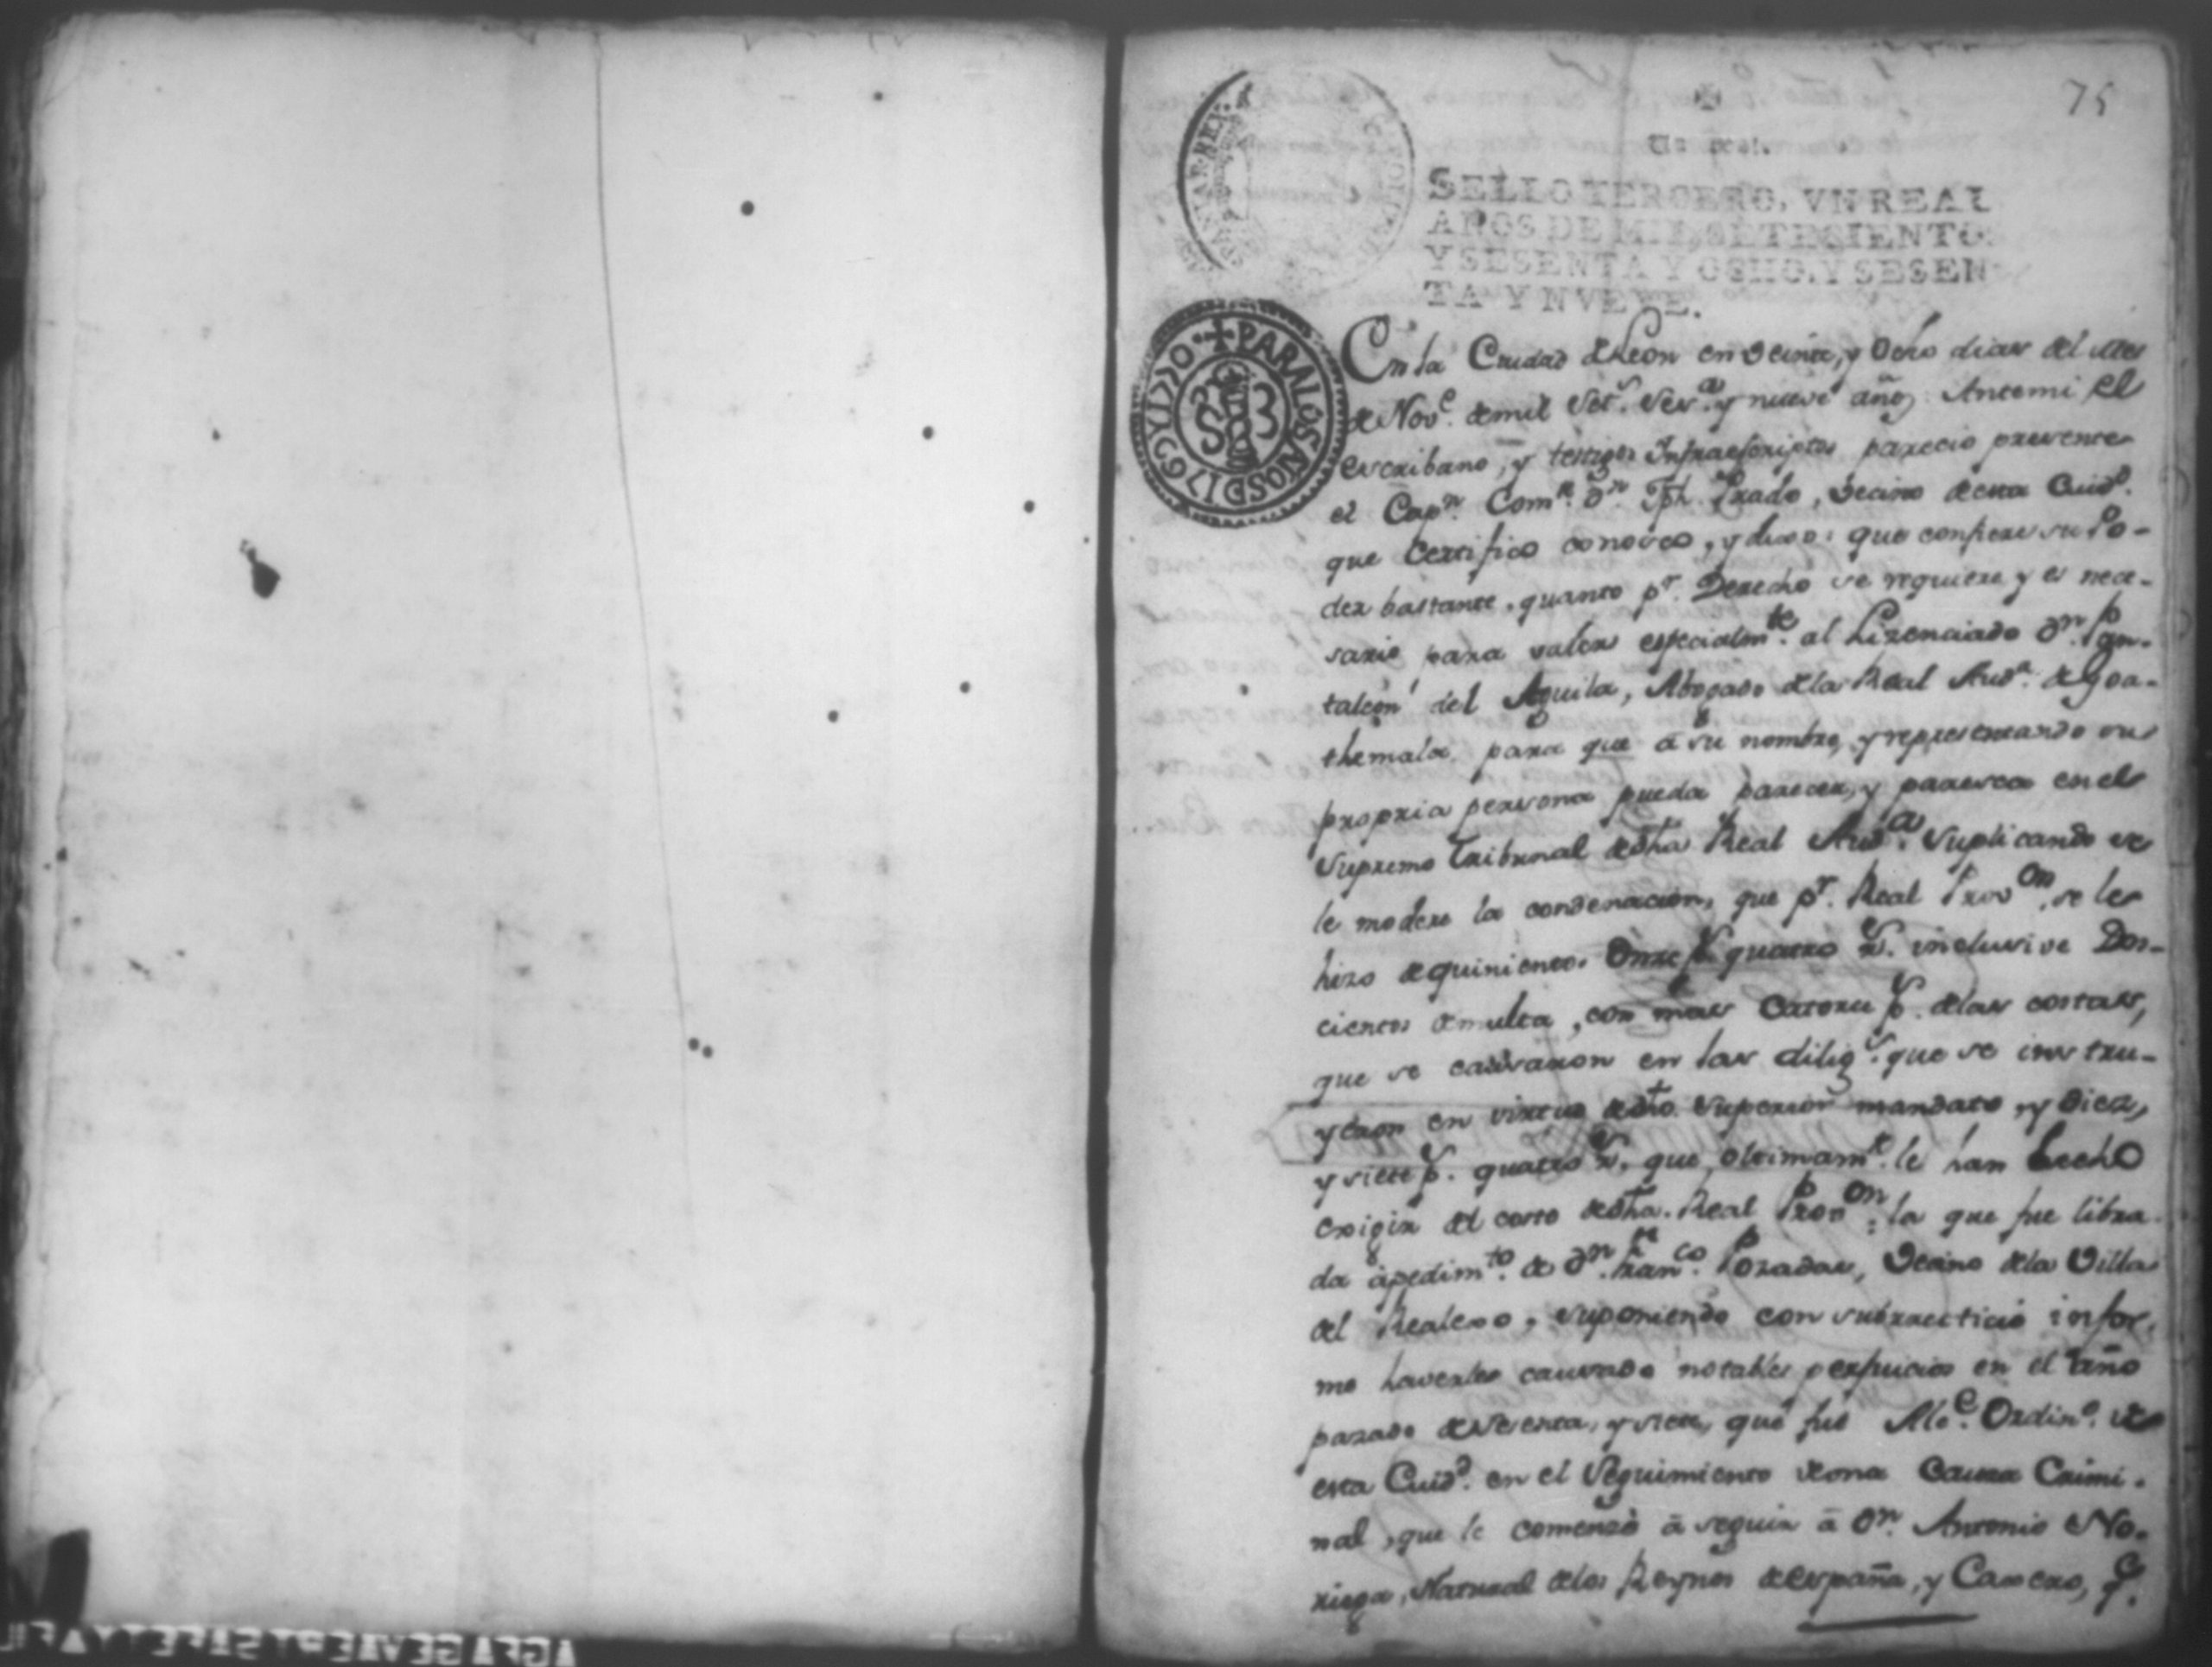 75
Un real.
SELLO TERCERO, VN REAL
AÑOS DE MIL SETECIENTOS
Y SESENTA Y OCHO, Y SESEN
TA Y NVEVE.
✝PARA LOS AÑOS D 1769 Y 1770
S 3
En la Ciudad de Leon en veinte, y ocho dias del Mes
de Nov.e de mil set.s ses.a y nueve años Antemi el
escribano, y testigos Infraescriptos parecio presente
el Cap.n Com.te D.n Jph. Prado, vecino de esta Ciud.d
que Certifico conosco, y dixo: que confiere su Po-
der bastante, quanto p.r Derecho se requiere y es nece-
sario para valer especialm.te al Lizenciado D.n Pan-
taleon del Aguila, Abogado de la Real Aud.a de Goa-
themala para que á su nombre, y representando su
propria persona pueda parecer, y paresca en el
Supremo Tribunal de dha Real Aud.a Suplicando se
le modere la condenacion, que p.r Real Prov.on se le
hizo de quinientos Onze p.s quatro r.s inclusive Dos-
cientos de multa, con mas Catorce p.s de las costas,
que se causaron en las dilig.s que se instru-
yeron en virtud de dho. Superior mandato, y Diez,
y siete p.s quatro r.s que ultimam.te le han hecho
exigir del costo de dha. Real Prov.on; la que fue libra-
da á pedim.to de D.n Fran.co Posadas, Vecino de la Villa
del Realexo, suponiendo con subrrecticio infor-
me haverles causado notables perjuicios en el año
pasado de sesenta, y siete, que fue Alc.e Ordin.o de
esta Ciud.d en el Seguimiento de una Causa Crimi-
nal, que le comenzó á seguir á D.n Antonio No-
riega, Natural de los Reynos de españa, y Caxero, q.e
AGFA GEVAERT SAFETY